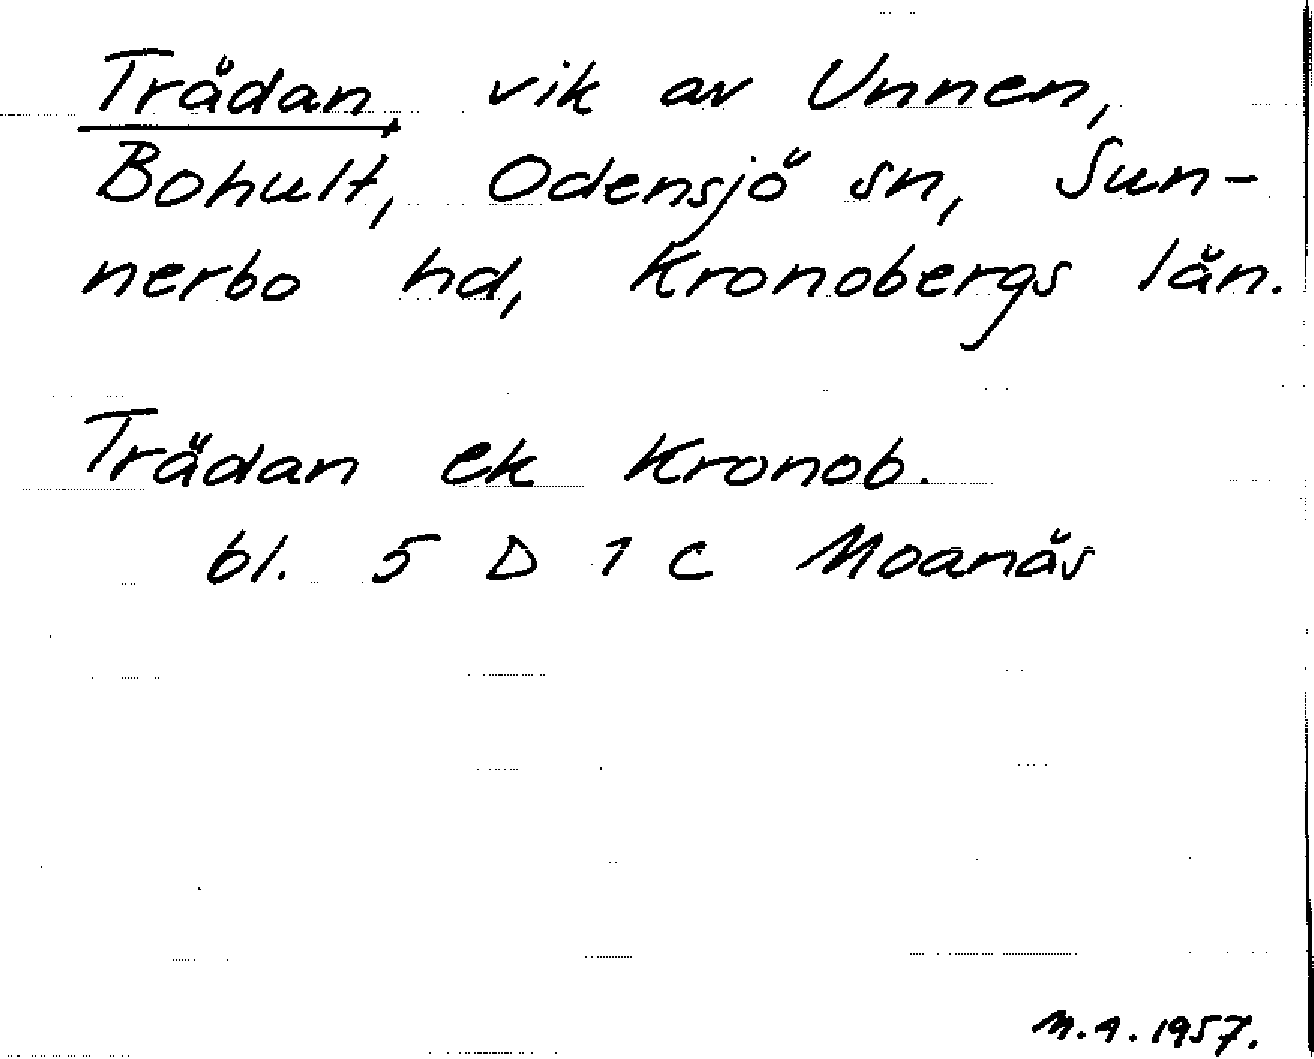 Trådan, vik av Unnen,
Bohult, Odensjö sn, Sun-
nerbo hd, Kronobergs län.
Trädan ek Kronob.
bl. 5 D 1 C Moanäs
1957.